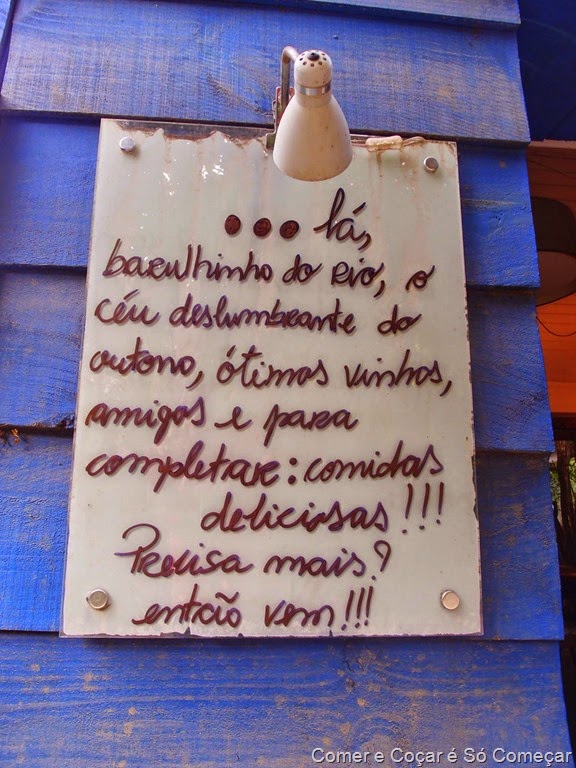 ... lá,
barulhinho do rio, o
céu deslumbrante do
outono, ótimos vinhos,
amigos e para
completar: comidas
deliciosas!!!
Precisa mais?
então vem!!!
Comer e Coçar é Só Começar